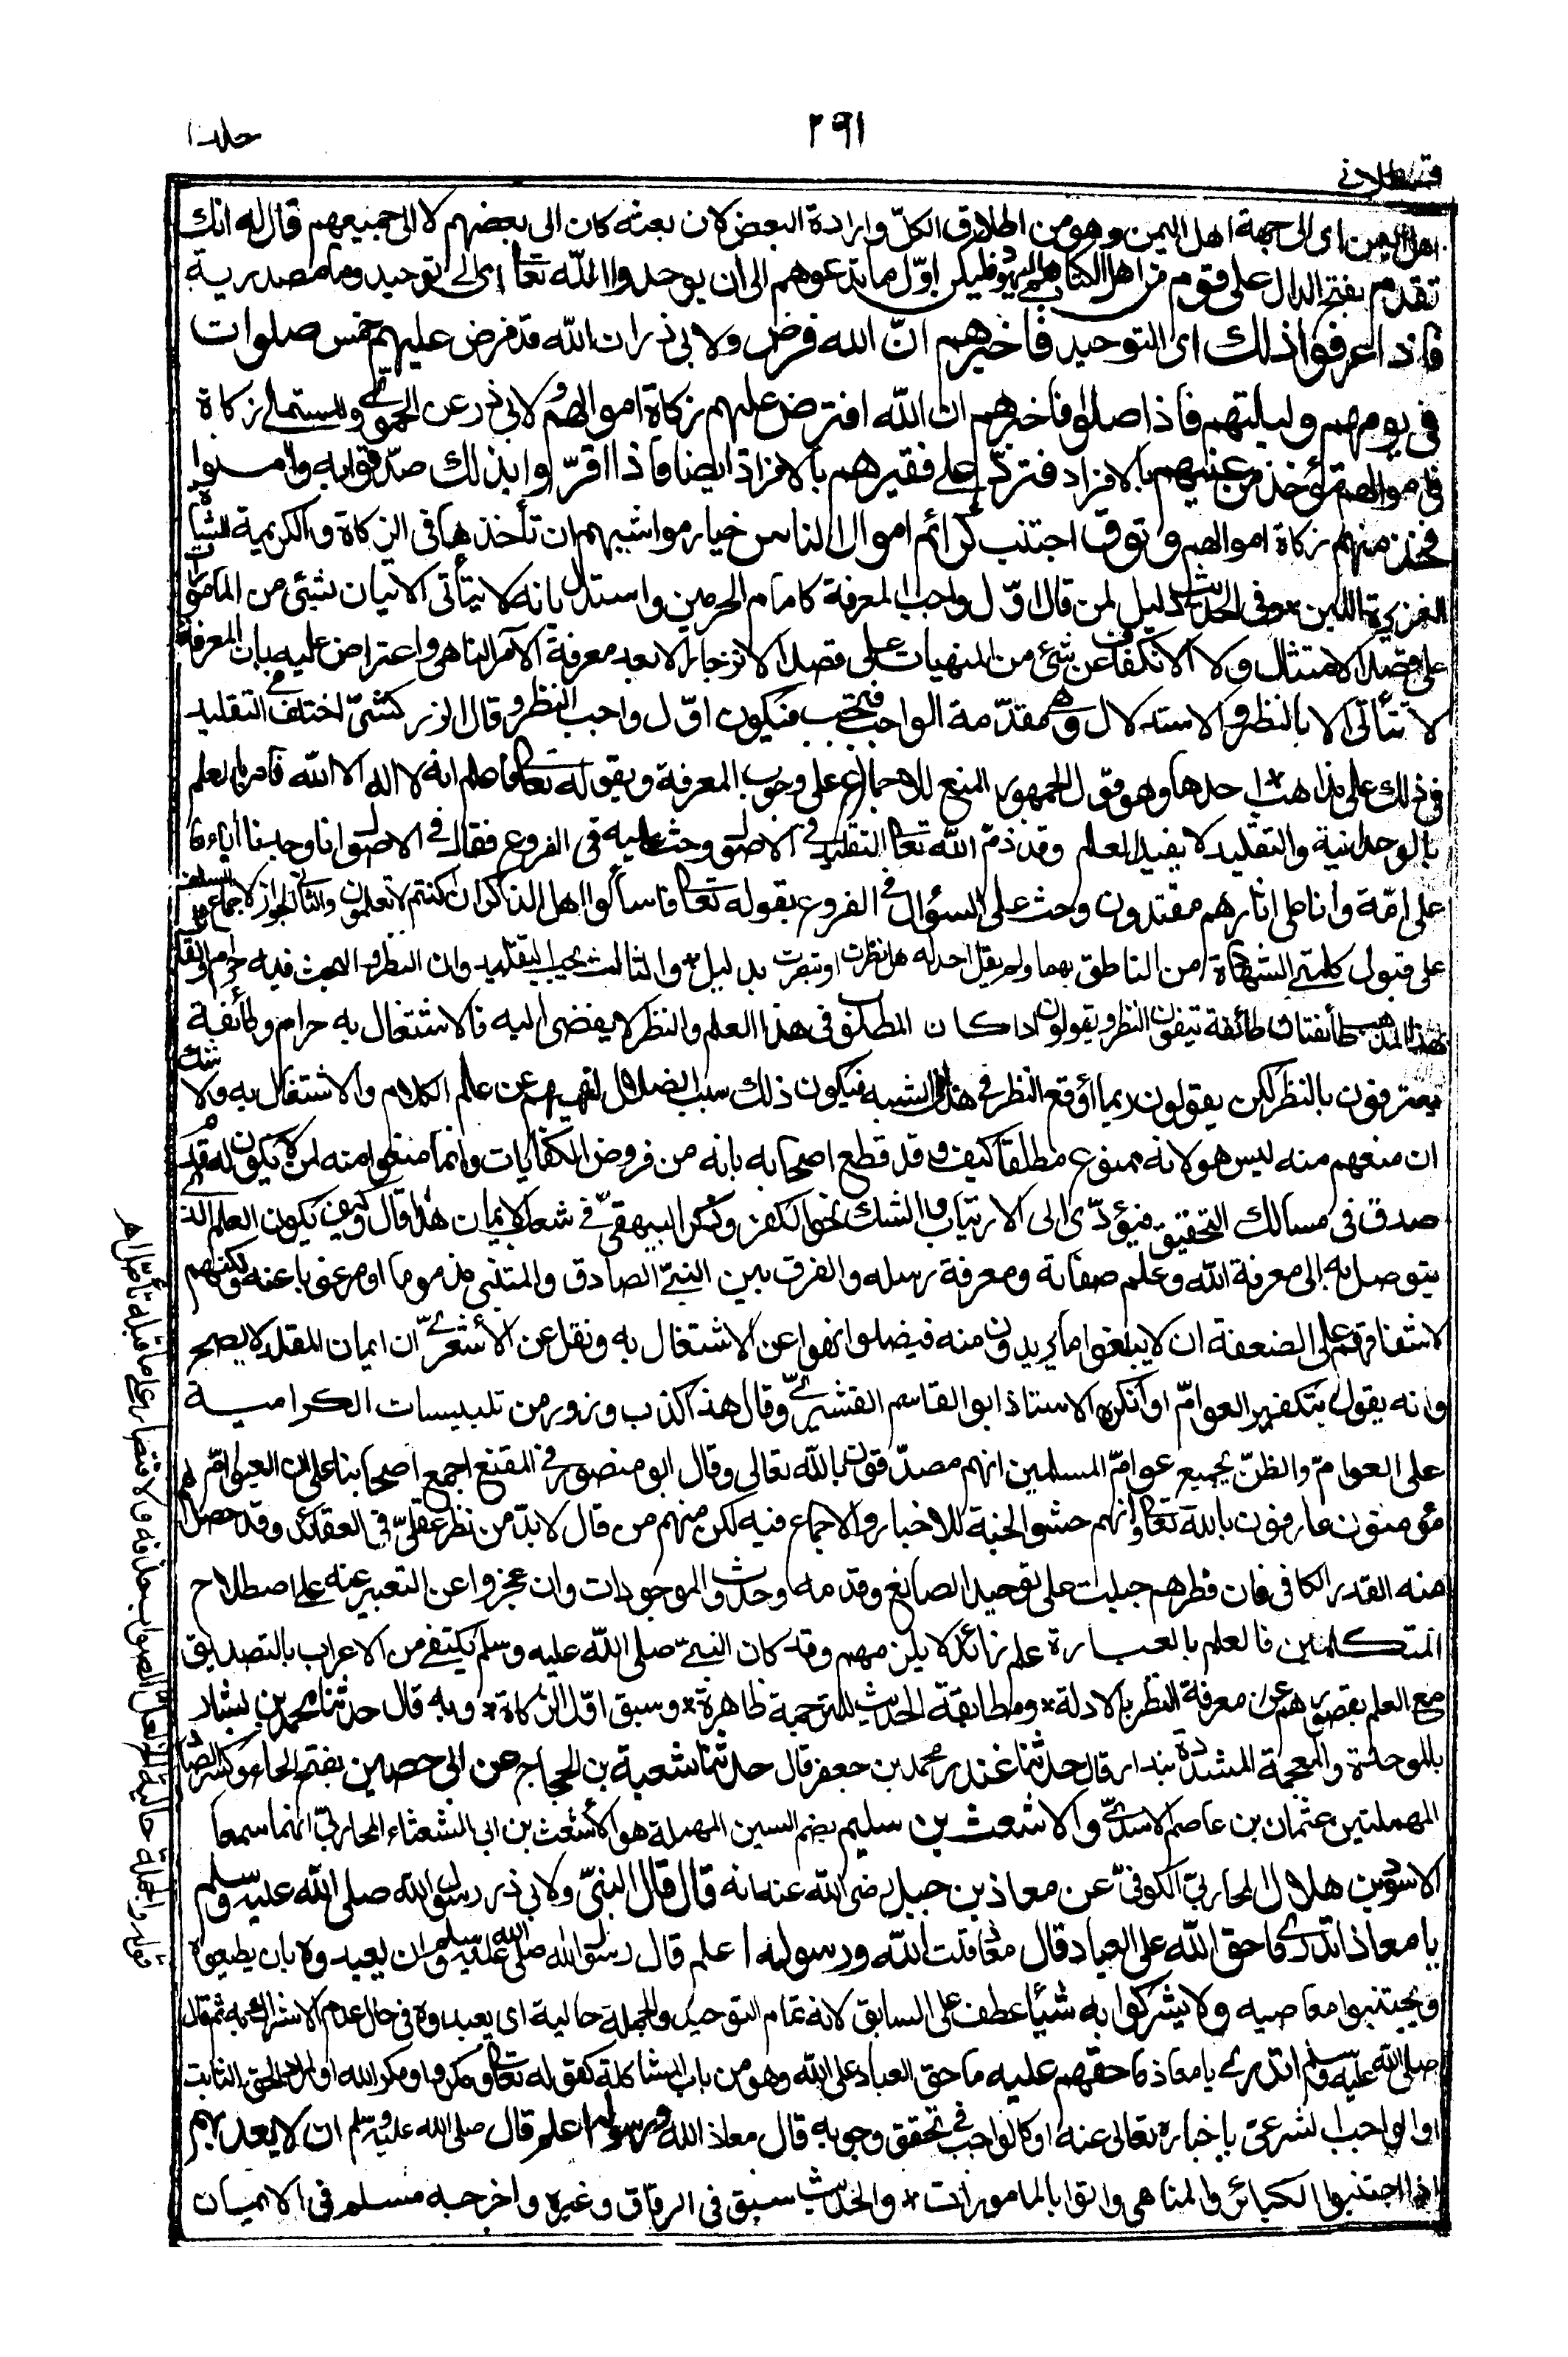 جلد ١٠
٢٩١
قسطلاني
اهل اليمن اى الى جهة اهل اليمن وهو من اطلاق الكلّ وارادة البعض لان بعثه كان الى بعضهم لا الى جميعهم قال له انك
تقدم بفتح الدال على قوم من اهل الكتاب هم اليهود فليكن اوّل ما تدعوهم الى ان يوحدوا الله تعالى اى الى توحيد وما مصدرية
فاذا عرفوا ذلك اى التوحيد فاخبرهم انّ الله فرض ولابى ذر ان الله قد فرض عليهم خمس صلوات
فى يومهم وليلتهم فاذا صلوا فاخبرهم ان الله افترض عليهم زكاة اموالهم ولابى ذر عن الحموى والمستملى زكاة
فى اموالهم تؤخذ من غنيهم بالافراد فتردّ على فقيرهم بالافراد ايضا فاذا اقرّوا بذلك صدّقوا به وآمنوا
فخذ منهم زكاة اموالهم وتوق اجتنب كرائم اموال الناس خيار مواشيهم ان تأخذها فى الزكاة والكريمة الشاة
الغزيرة اللبن * وفى الحديث دليل لمن قال اوّل واجب المعرفة كامام الحرمين واستدل بانه لا يتأتى الاتيان بشئ من المأمورات
على قصد الامتثال ولا الانكفاف عن شئ من المنهيات على قصد الانزجار الا بعد معرفة الآمر الناهى واعترض عليه بان المعرفة
لا تتأتى الا بالنظر والاستدلال وهى مقدّمة الواجب فتجب فيكون اوّل واجب النظر وقال الزركشىّ اختلف فى التقليد
فى ذلك على مذاهب * احدها وهو قول الجمهور المنع للاجماع على وجوب المعرفة وبقوله تعالى فاعلم انه لا اله الا الله فأمر بالعلم
بالوحدانية والتقليد لا يفيد العلم وقد ذمّ الله تعالى التقليد فى الاصول وحث عليه فى الفروع فقال فى الاصول انا وجدنا آباءنا
على امّة وانا على اثارهم مقتدون وحث على السؤال فى الفروع بقوله تعالى فاسألوا اهل الذكر ان كنتم لا تعلمون والثانى الجواز لاجماع السلف
على قبول كلمتى الشهادة من الناطق بهما ولم يقل احد له هل نظرت او تبصرت بدليل * والثالث يجب التقليد وان النظر والبحث فيه حرام والقائل
بهذا المذهب طائفتان طائفة تنفون النظر ويقولون اذا كان المطلوب فى هذا العلم والنظر لا يفضى اليه فالاشتغال به حرام وطائفة
يعترفون بالنظر لكن يقولون ربما أوقع النظر فى هذا الشبه فيكون ذلك سبب الضلال لنهيهم عن علم الكلام والاشتغال به ولا شك
ان منعهم منه ليس هو لانه ممنوع مطلقا كيف وقد قطع اصحابه بانه من فروض الكفايات وانما منعوا منه لمن لا يكون له قدم
صدق فى مسالك التحقيق فيؤدّى الى الارتياب والشك نحو الكفر وذكر البيهقىّ فى شعب الايمان هذا قال وكيف يكون العلم الذى
يتوصل به الى معرفة الله وعلم صفاته ومعرفة رسله والفرق بين النبىّ الصادق والمتنبى مذموما او مرغوبا عنه ولكنهم
لاشفاقهم على الضعفة ان لا يبلغوا ما يريدون منه فيضلوا نهوا عن الاشتغال به ونقل عن الأشعرىّ ان ايمان المقلد لا يصح
وانه يقول بتكفير العوامّ وانكره الاستاذ ابو القاسم القشيرىّ وقال هذا كذب وزور من تلبيسات الكرامية
على العوامّ والظنّ بجميع عوامّ المسلمين انهم مصدّقون بالله تعالى وقال ابو منصور فى المقنع اجمع اصحابنا على ان العوامّ
مؤمنون عارفون بالله تعالى وانهم حشو الجنة للاخبار والاجماع فيه لكن منهم من قال لابدّ من نظر عقلىّ فى العقائد وقد حصل لهم
منه القدر الكافى فان فطرهم جبلت على توحيد الصانع وقدمه وحدوث الموجودات وان عجزوا عن التعبير عنه على اصطلاح
المتكلمين فالعلم بالعبارة علم زائد لا يلزمهم وقد كان النبىّ صلى الله عليه وسلم يكتفى من الاعراب بالتصديق
مع العلم بقصورهم عن معرفة النظر بالادلة * ومطابقة الحديث للترجمة ظاهرة * وسبق اوّل الزكاة * وبه قال حدثنا محمد بن بشار
بالموحدة والمعجمة المشدّدة بندار قال حدثنا غندر محمد بن جعفر قال حدثنا شعبة بن الحجاج عن ابى حصين بفتح الحاء وكسر الصاد
المهملتين عثمان بن عاصم الاسدىّ والاشعث بن سليم بضم السين المهملة هو الأشعث بن ابى الشعثاء المحاربىّ انهما سمعا
الاسود بن هلال المحاربىّ الكوفىّ عن معاذ بن جبل رضى الله عنه انه قال قال النبىّ ولابى ذر رسول الله صلى الله عليه وسلم
يا معاذ اتدرى ما حق الله على العباد قال معاذ قلت الله ورسوله اعلم قال رسول الله صلى الله عليه وسلم ان يعبدوه بان يطيعوه
ويجتنبوا معاصيه ولا يشركوا به شيئا عطف على السابق لانه تمام التوحيد والجملة حالية اى يعبدوه فى حال عدم الاشراك به ثم قال
صلى الله عليه وسلم اتدرى يا معاذ ما حقهم عليه ما حق العباد على الله وهو من باب المشاكلة كقوله تعالى ومكروا ومكر الله او المراد الحق الثابت
او الواجب الشرعىّ باخباره تعالى عنه او كالواجب فى تحقق وجوبه قال معاذ الله ورسوله اعلم قال صلى الله عليه وسلم ان لا يعذبهم
اذا اجتنبوا الكبائر والمناهى واتوا بالمامورات * والحديث سبق فى الرقاق وغيره واخرجه مسلم فى الايمان
قوله والجملة حالية الخ لعلّ الصواب حذفه والاقتصار على ما قبله تأمّل اه